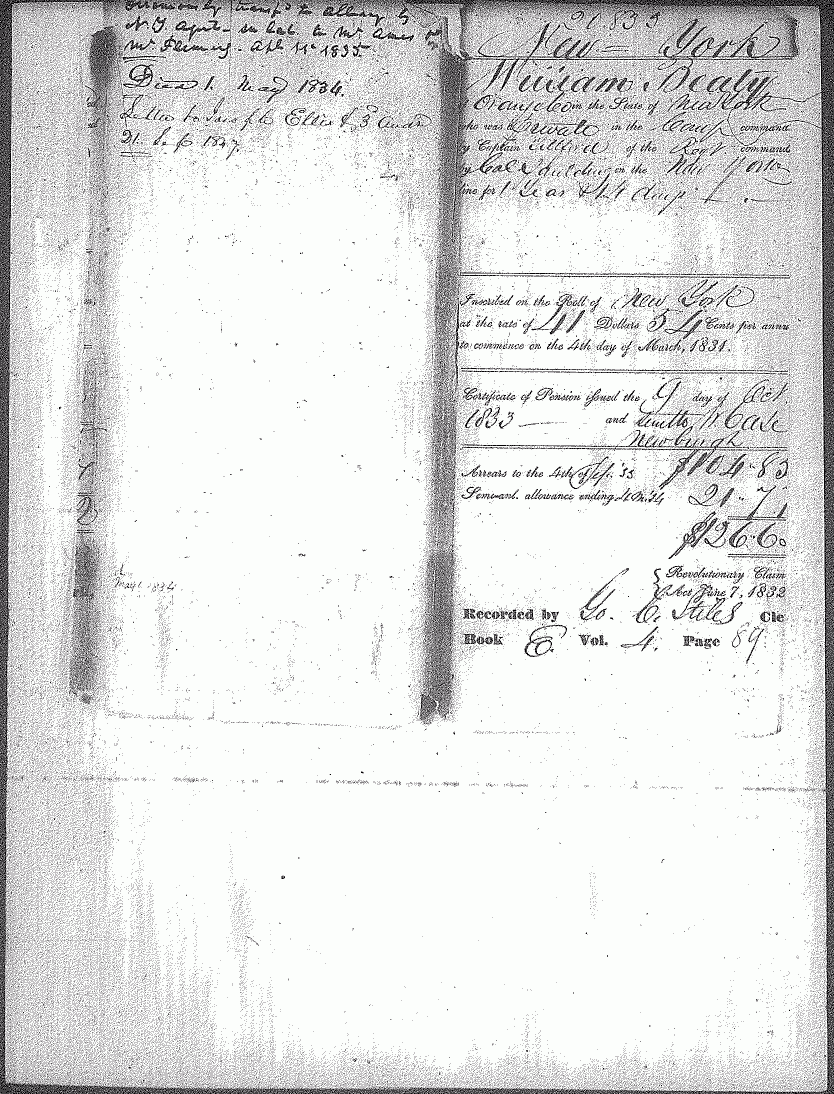 N.Y. Agent
Mr Fleming. Apl 11th 1835
Died 1. May 1834.
Letter to Ellis
21. Sep 1847.
May 1 1834
21.833
New York
William Bealy
Orange Co in the State of New York
who was a Private in the Comp command
by Captain of the Regt command
by Col in the New York
line for 1 year & 14 days
Inscribed on the Roll of New York
at the rate of 41 Dollars 54 Cents per annu
to commence on the 4th day of March, 1831.
Certificate of Pension issued the 9 day of Oct
1833 and Case
Newburgh
Arrears to the 4th of Sep. '33 $104.83
Semi-anl. allowance ending 4 M. 34 21.77
$126.60
Revolutionary Claim
Act June 7, 1832
Recorded by Stiles Cle
Book E. Vol. 4. Page 89